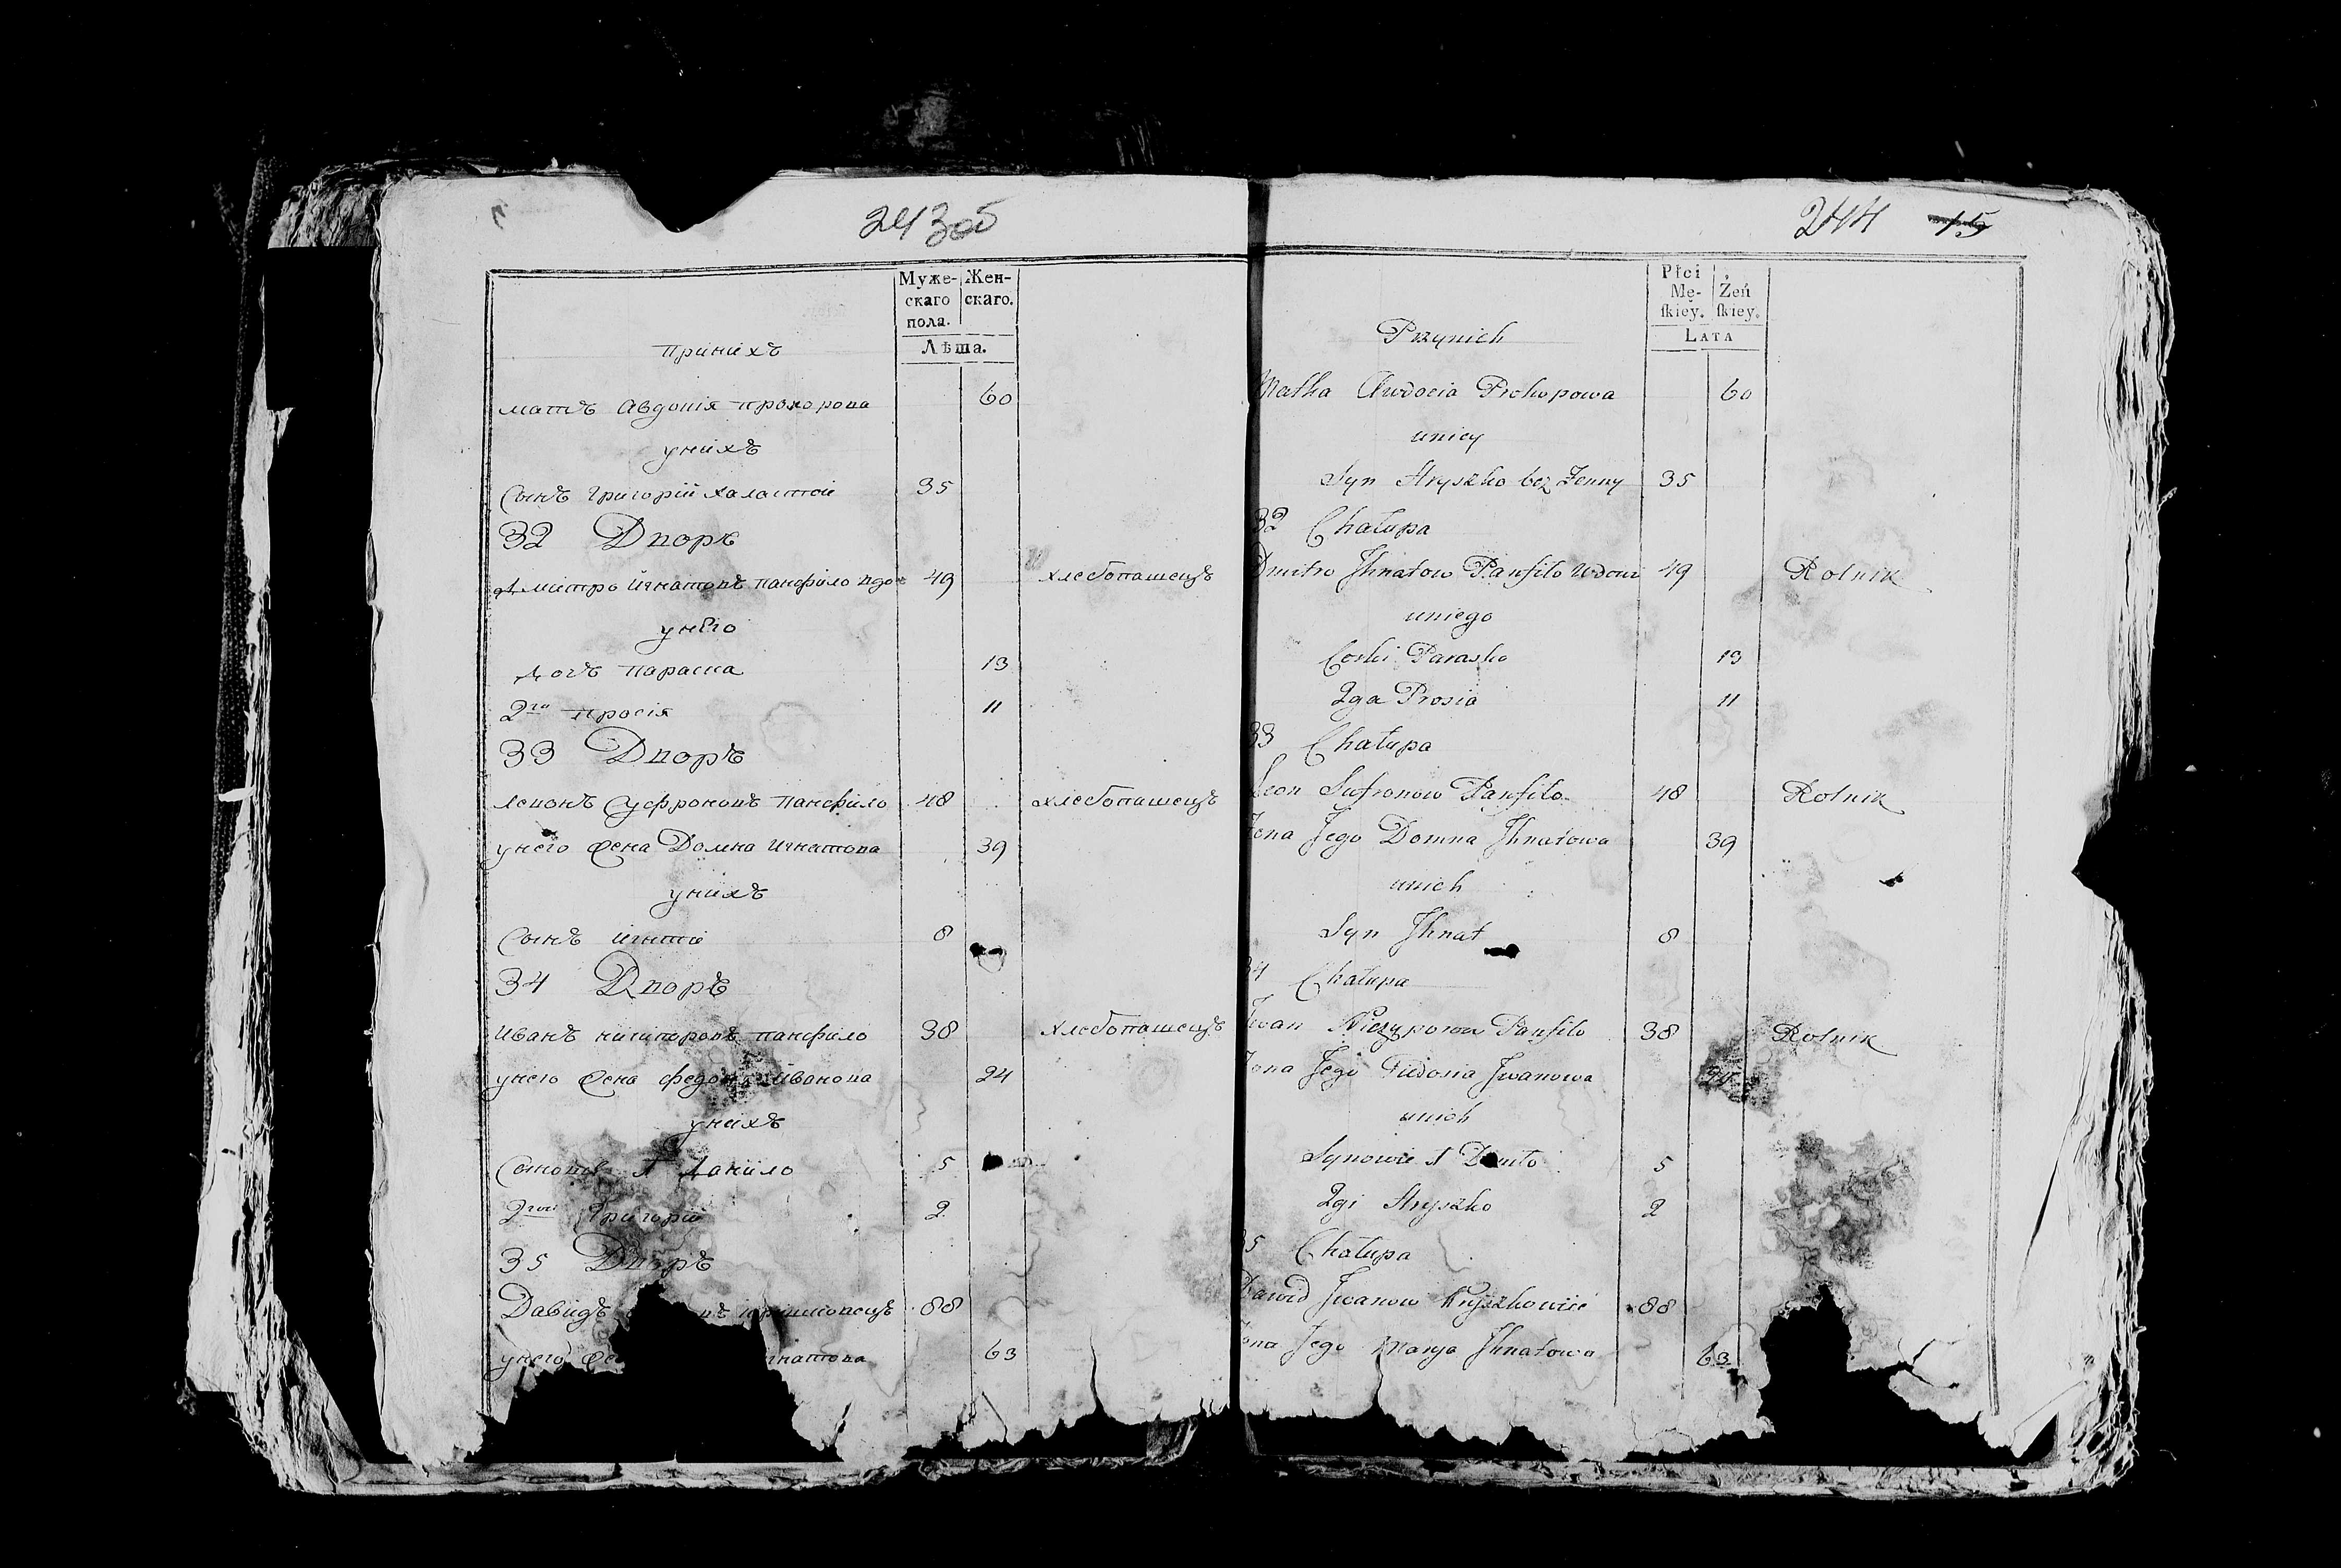 243об
Муже-
скаго
пола.
Жен-
скаго.
Лѣта.
принихъ
матъ Авдопія прохорова 60
унихъ
Сынъ Григорій халастой 35
32 Дворъ
дмитро Игнатовъ панфило вдов 49 хлебопашецъ
унего
дочъ параска 13
2га просія 11
33 Дворъ
левонъ Суфроновъ панфило 48 хлебопашецъ
унего жена Домна Игнатова 39
унихъ
Сынъ 8
34 Дворъ
Иванъ ничипоровъ панфило 38 хлебопашецъ
унего жена Иванова 24
унихъ
1 данило 5
2гой Григорій 2
35 Дворъ
Давидъ 88
унего гнатова 63
244 15
Płci
Mę-
ſkiey.
Żeń
ſkiey.
LATA
Przynich
Matka Awdocia Prokopowa 60
unich
Syn Hryszko bez Zenny 35
32 Chałupa
Dmitro Jhnatow Panfilo Wdowi 49 Rolnik
uniego
Corki Paraska 13
2ga Prosia 11
33 Chałupa
Leon Sufronow Panfilo 48 Rolnik
Zena Jego Domna Jhnatowa 39
unich
Syn Jhnat 8
34 Chałupa
Jwan Niczyporow Panfilo 38 Rolnik
Zona Jego Fiedosia Jwanowa
unich
Synowie 1 5
2gi Hryszko 2
35 Chałupa
Dawid Jwanow 88
Zona Jego Marya Jhnatowa 63